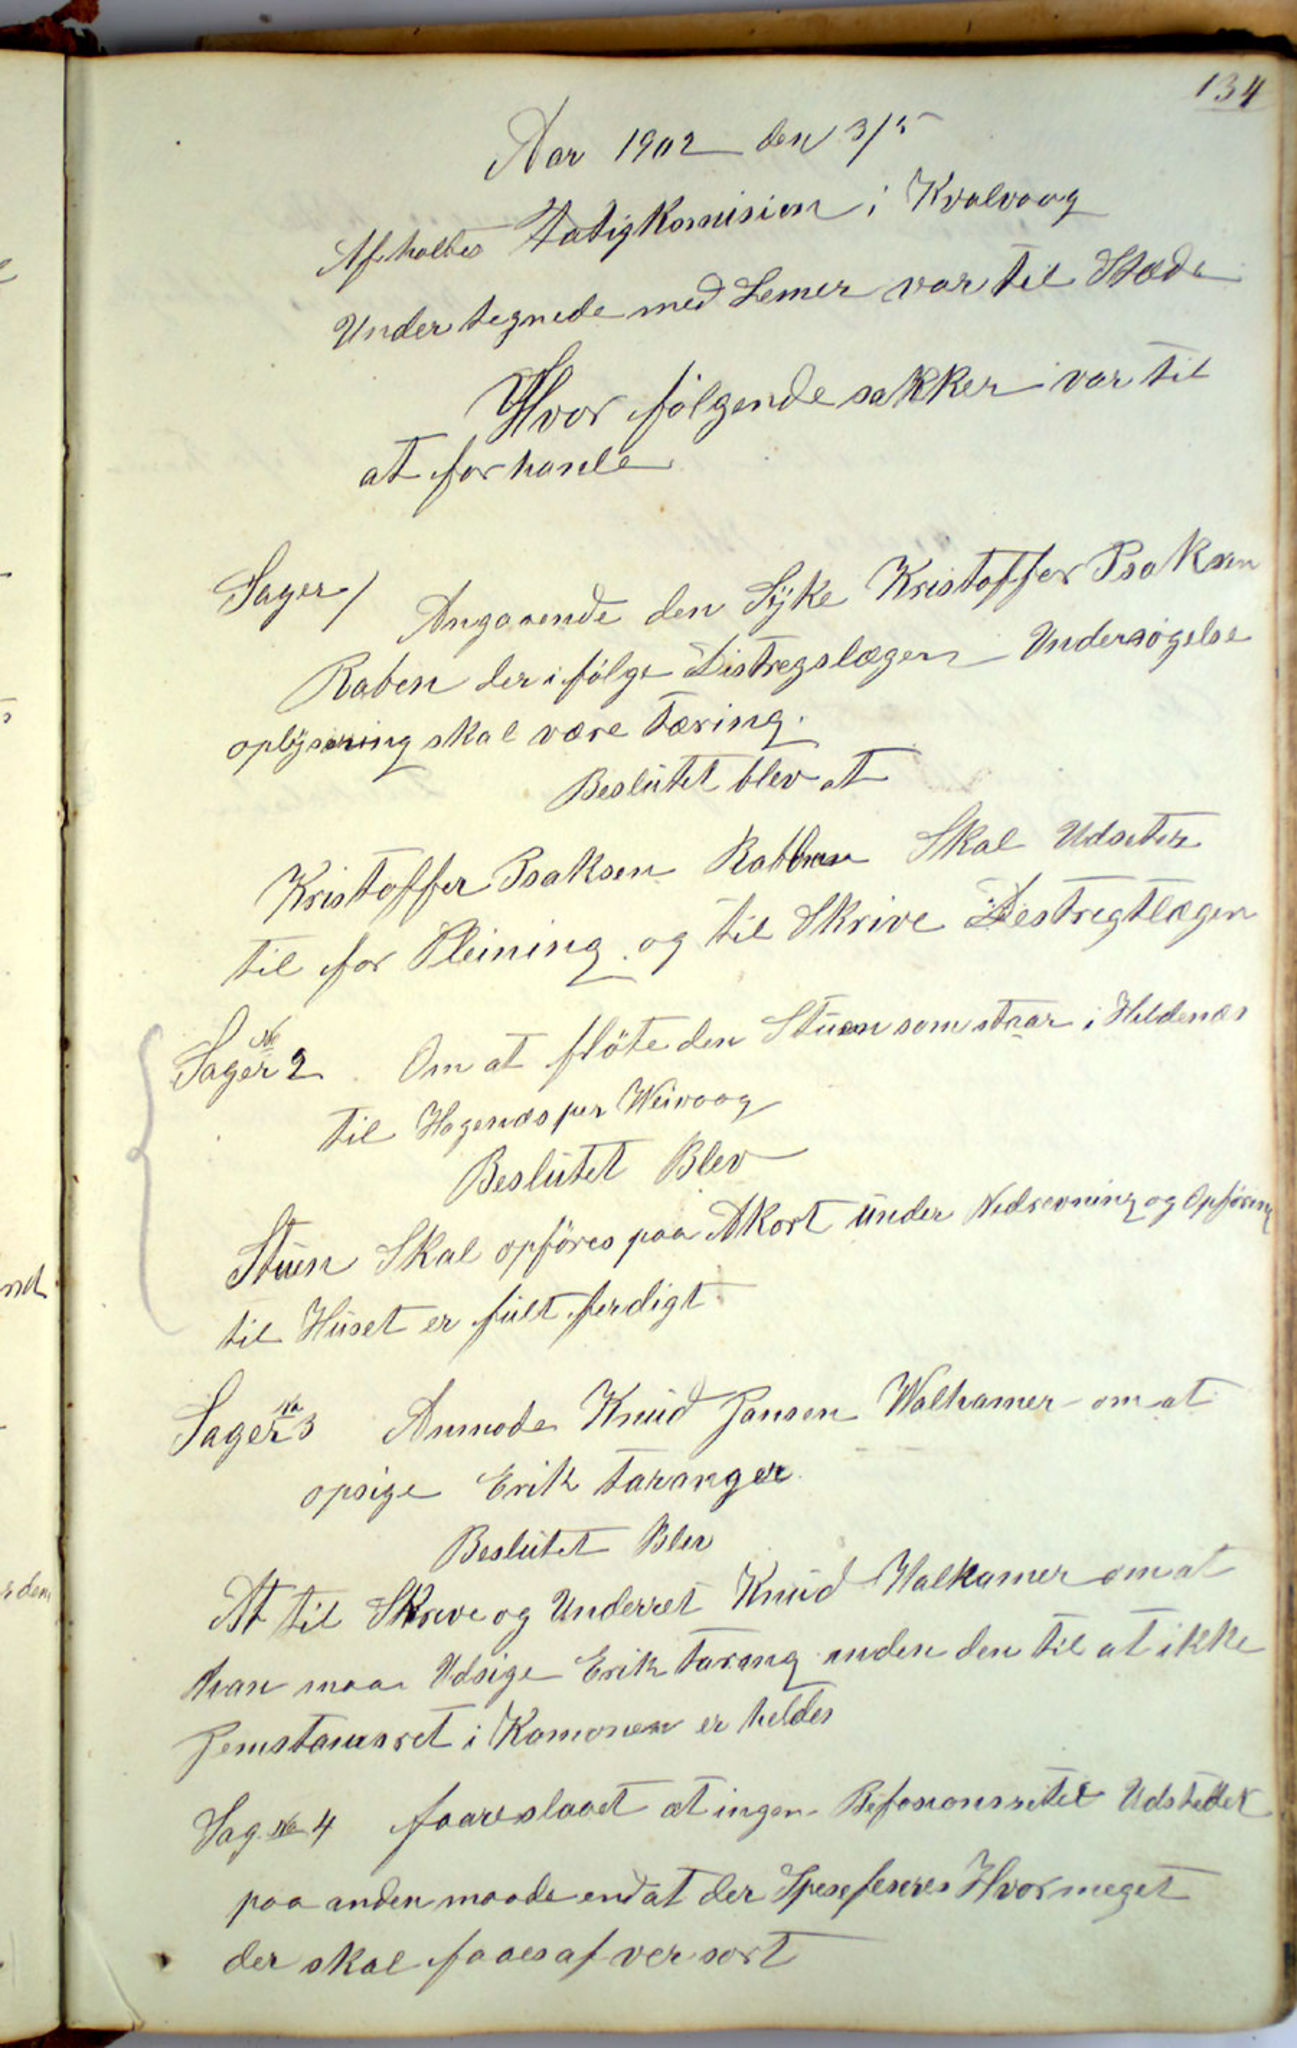 134
Aar 1902 den 3/5
Afholtes Fatigkomision i Kvalvaag
Under tegnede med Lemer var til Stæde
Hvor følgende sakker var til
at forhanle
Sager 1 Angaaende den Syke Kristoffer Isaksen
Raben der i følge Distregslægen Undersøgelse
oplysning skal være tæring.
Beslutet blev at
Kristoffer Isaksen Rabben Skal Udsetes
til for Pleining og til Skrive Destregtlægen
Sager No 2 Om at fløte den Stuen som staar i Hildenæs
til Hagenæs per Weivaag
Beslutet Blev
Stuen Skal opføres paa Akort under Nedrevning og Opføring
til Huset er fult ferdigt
Sager No 3 Anmode Knud Jansen Walhamer om at
opsige Erik Taranger
Beslutet Blev
At til Skrive og Underret Knud Walhamer om at
han maa Udsige Erik Tarang inden den til at ikke
Jemstavnsret i Komonen er heldes
Sag No 4 faareslaaet at ingen Udstedet
paa anden maade end at der Spesefeseres Hvor meget
der skal faaes af ver sort
nd
s den